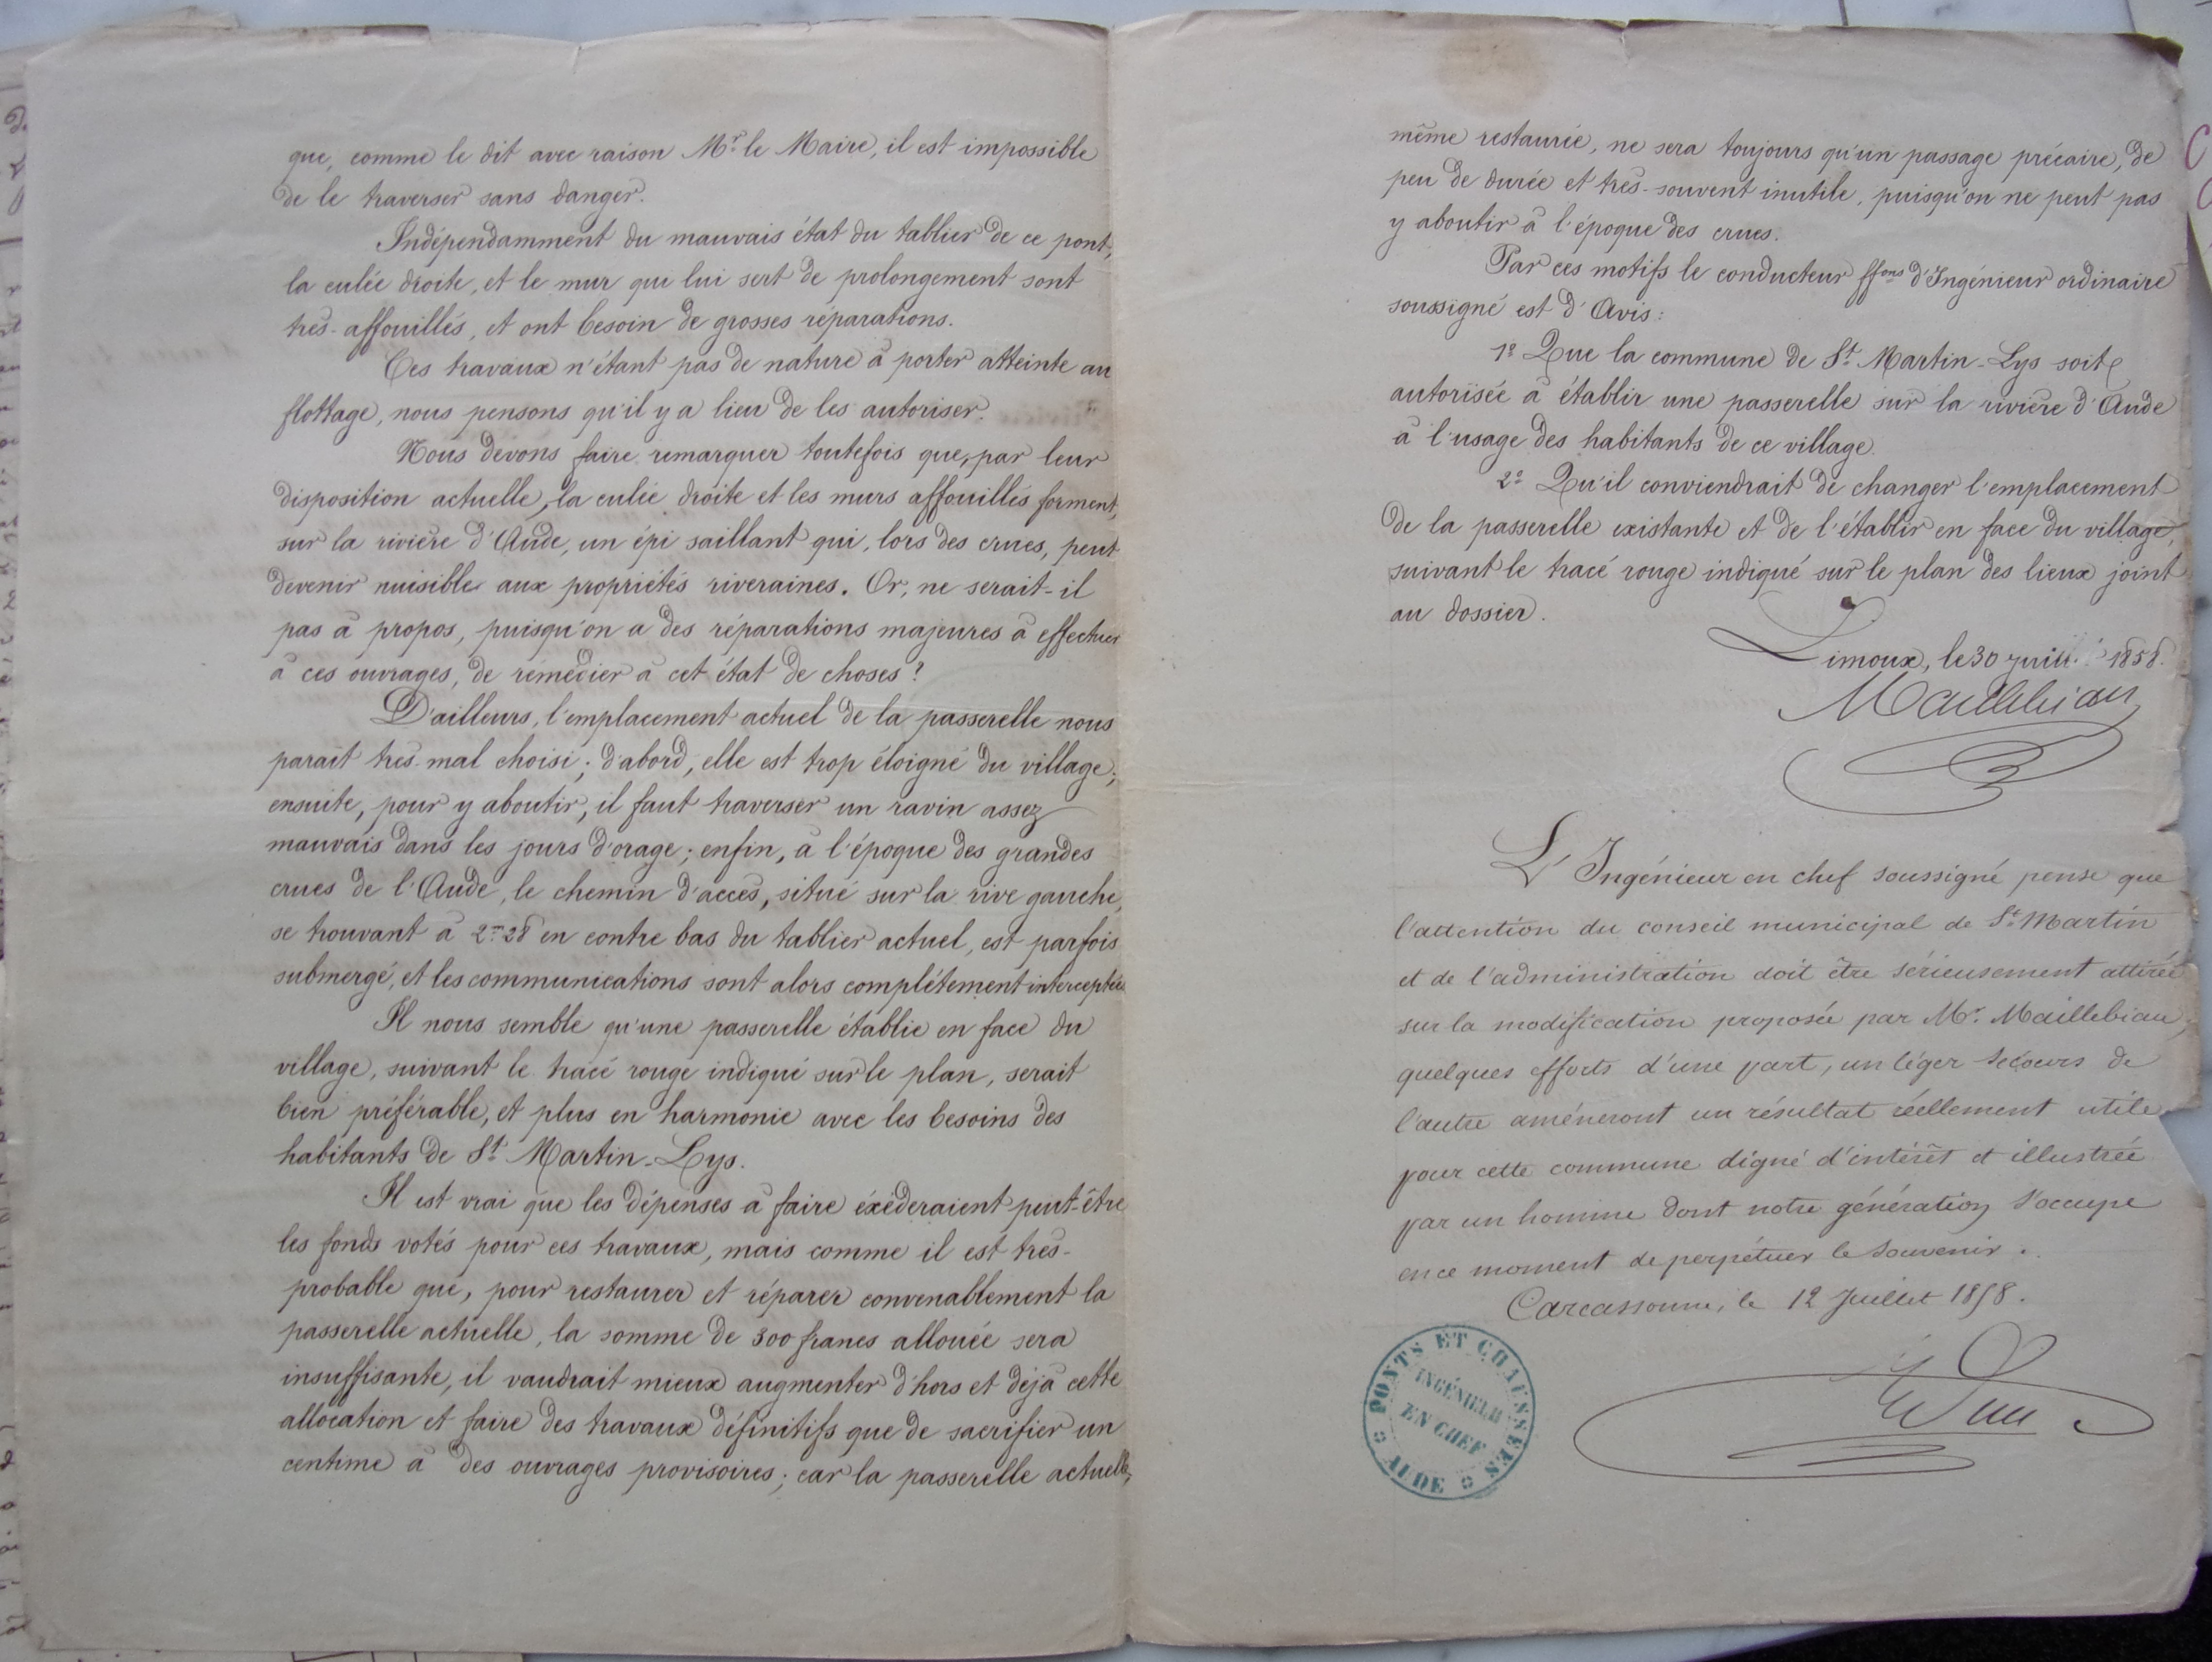 que, comme le dit avec raison Mr. le Maire, il est impossible
de le traverser sans danger.
Indépendamment du mauvais état du tablier de ce pont,
la culée droite, et le mur qui lui sert de prolongement sont
très-affouillés, et ont besoin de grosses réparations.
Ces travaux n'étant pas de nature à porter atteinte au
flottage, nous pensons qu'il y a lieu de les autoriser.
Nous devons faire remarquer toutefois que, par leur
disposition actuelle, la culée droite et les murs affouillés forment,
sur la rivière d'Aude, un épi saillant qui, lors des crues, peut
devenir nuisible aux propriétés riveraines. Or, ne serait-il
pas à propos, puisqu'on a des réparations majeures à effectuer
à ces ouvrages, de remédier à cet état de choses?
D'ailleurs, l'emplacement actuel de la passerelle nous
parait très mal choisi; d'abord, elle est trop éloigné du village;
ensuite, pour y aboutir, il faut traverser un ravin assez
mauvais dans les jours d'orage; enfin, à l'époque des grandes
crues de l'Aude, le chemin d'accès, situé sur la rive gauche,
se trouvant à 2m28 en contre bas du tablier actuel, est parfois
submergé, et les communications sont alors complétement interceptées
Il nous semble qu'une passerelle établie en face du
village, suivant le tracé rouge indiqué sur le plan, serait
bien préférable, et plus en harmonie avec les besoins des
habitants de St. Martin-Lys.
Il est vrai que les dépenses à faire éxéderaient peut-être
les fonds votés pour ces travaux, mais comme il est très-
probable que, pour restaurer et réparer convenablement la
passerelle actuelle, la somme de 300 francs allouée sera
insuffisante, il vaudrait mieux augmenter d'hors et déjà cette
allocation et faire des travaux définitifs que de sacrifier un
centime à des ouvrages provisoires; car la passerelle actuelle,
même restaurée, ne sera toujours qu'un passage précaire, de
peu de durée et très-souvent inutile, puisqu'on ne peut pas
y aboutir à l'époque des crues.
Par ces motifs le conducteur ffons d'Ingénieur ordinaire
soussigné est d'Avis:
1º Que la commune de St. Martin-Lys soit
autorisée à établir une passerelle sur la rivière d'Aude
à l'usage des habitants de ce village.
2º Qu'il conviendrait de changer l'emplacement
de la passerelle existante et de l'établir en face du village,
suivant le tracé rouge indiqué sur le plan des lieux joint
au dossier.
Limoux, le 30 1858.
Maillebiau
L'Ingénieur en chef soussigné pense que
l'attention du conseil municipal de St. Martin
et de l'administration doit être sérieusement attirée
sur la modification proposée par Mr. Maillebiau,
quelques efforts d'une part, un léger secours de
l'autre améneront un résultat réellement utile
pour cette commune digne d'intérêt et illustrée
par un homme dont notre génération s'occupe
en ce moment de perpétuer le souvenir.
Carcassonne, le 12 Juillet 1858.
PONTS ET CHAUSSÉES
INGÉNIEUR
EN CHEF
AUDE